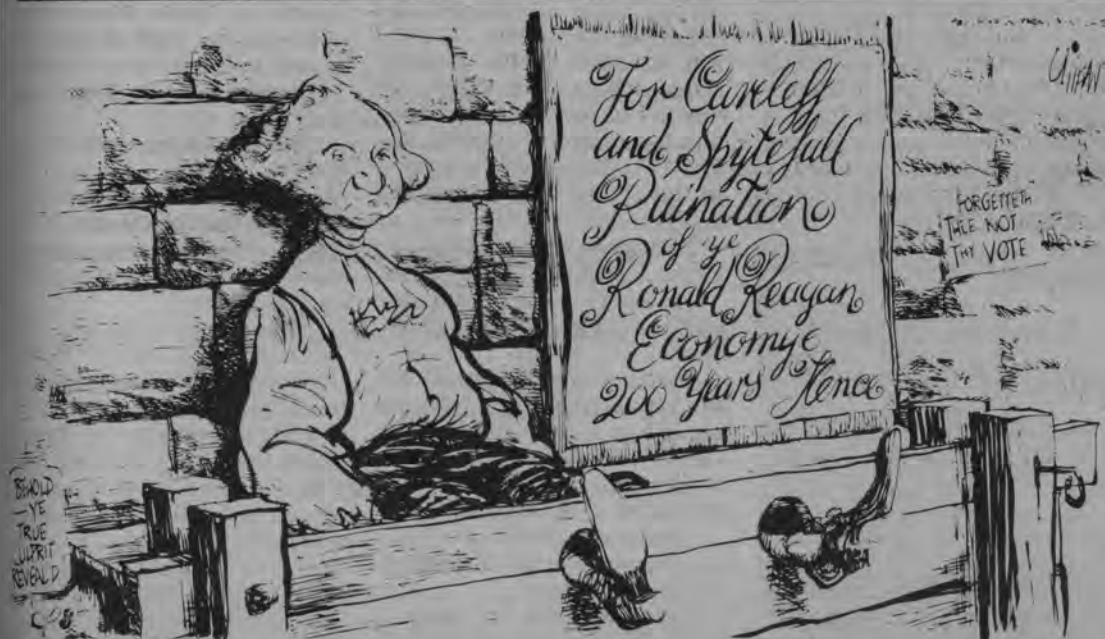 For Careleſſ
and Spytefull
Ruination
of ye
Ronald Reagan
Economye
200 Years Hence
FORGETTETH
THEE NOT
THY VOTE
BEHOLD
— YE
TRUE
CULPRIT
REVEAL'D